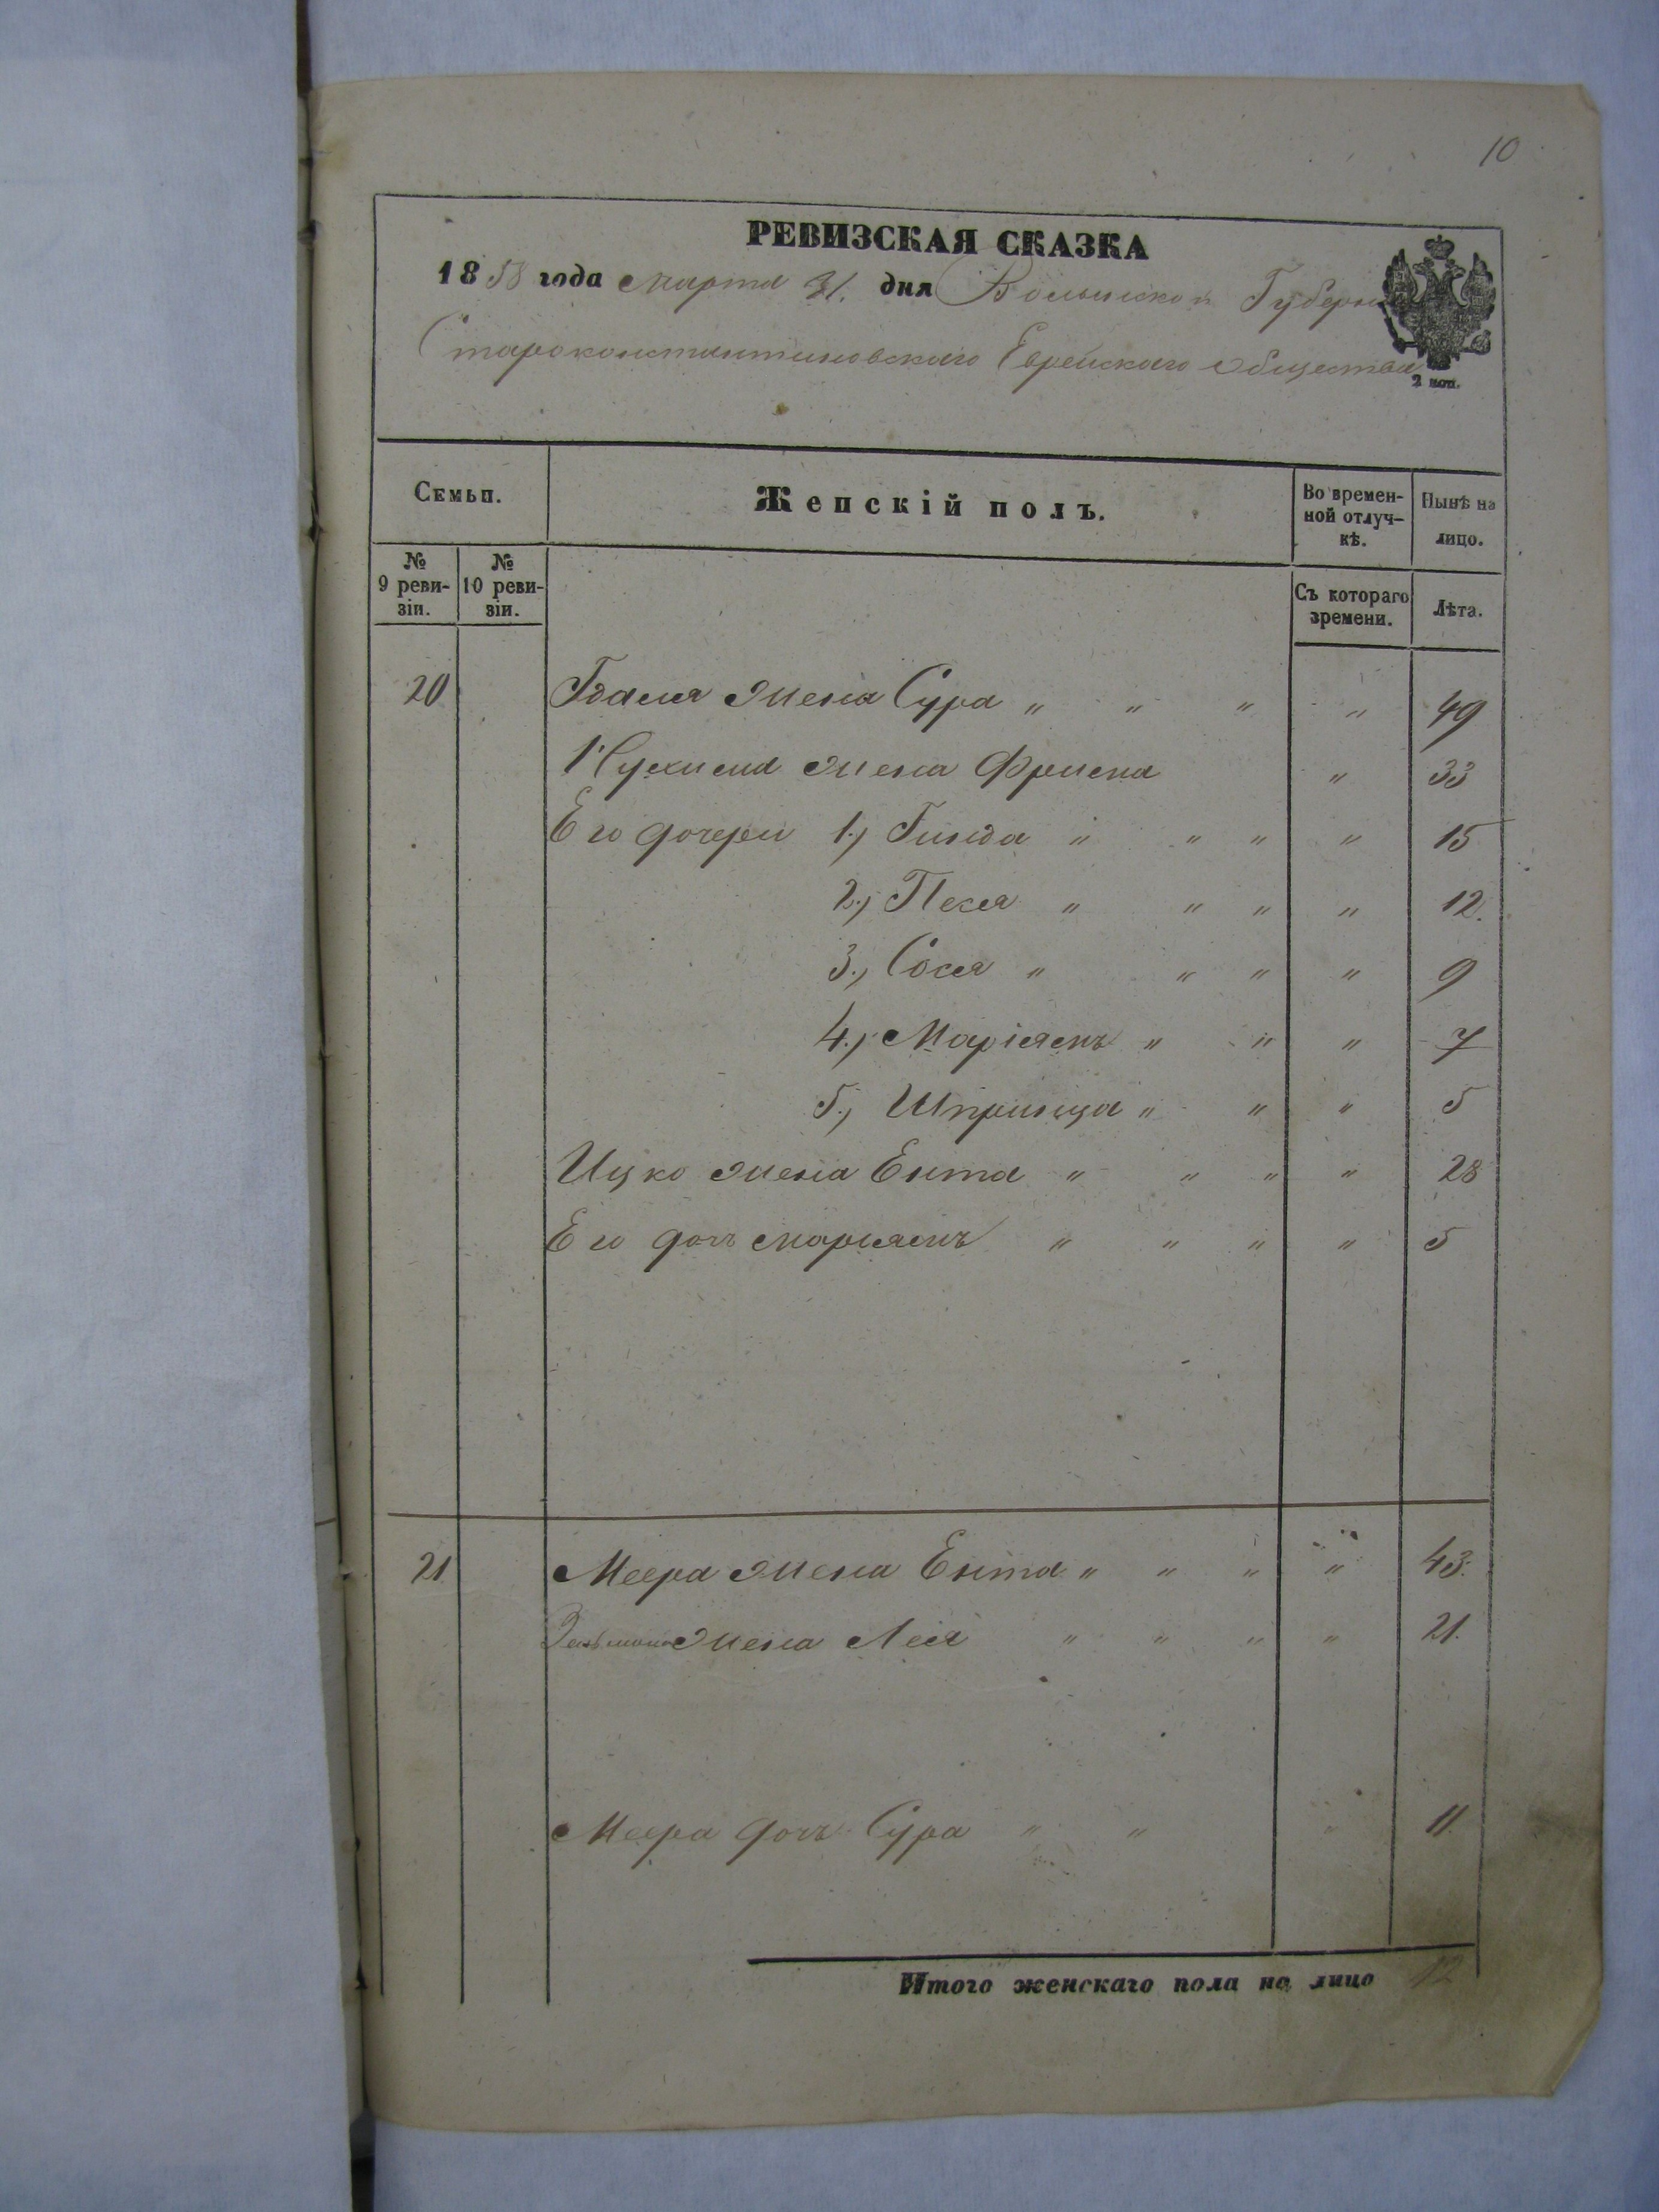 10
РЕВИЗСКАЯ СКАЗКА
1858 года марта 31. дня Волынской Губерніи
Староконстантиновскаго Еврейскаго общества
2 коп.
Семьи. Женскій полъ. Во времен-ной отлуч-кѣ. Нынѣ на лицо.
№ 9 реви-зіи. № 10 реви-зіи. Съ котораго времени. Лѣта.
20 Гдаля жена Сура " " " " 49
Нухима жена Фрима " 33
Его дочери 1.) Гинда " " " " 15
2.) Песя " " " " 12.
3.) Сося " " " " 9
4.) Маріямъ " " " 7
5.) Шпринца " " " 5
Ицко жена Ента " " " " 28
Его дочь маріямъ " " " " 5
21 Меера жена Ента " " " " 43.
Зельмана жена Лея " " " " 21.
Меера дочь Сура " " " 11.
Итого женскаго пола на лицо 12